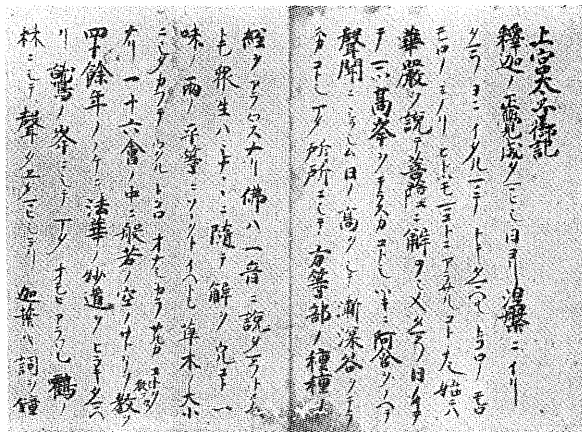 上宮太子御記
釋迦ノ正覺成タマヒシ日ヨリ涅槃ニイリ
タマフヨニイタルマテニトキタマヘルトコロノモロ
モロノミノリヒトツモマコトニアラサルコトナシ始ニハ
華嚴ヲ説テ菩薩ニ解ラシメタマフ日イテテ
高峯ヲテラスカコトシツキニ阿含ヲノヘテ
聲聞ニシラシム日ノ高クシテ漸深谷ヲテラス
カコトシマタ所所ニシテ方等部ノ種種ノ
經ヲアラハスナリ佛ハ一音ニ説タマフトイヘ
トモ衆生ハシナシナニ隨テ解ヲ完コト一
味ノ雨ハ平等ニソソクトイヘトモ草木ノ大小
ニシタカヒテウクルトコロオナシカラサルカコトク
ナリ一十六會ノ中ニ般若ノ空ノサトリヲ教ヘ
四十餘年ノノチニ法華ノ妙道ヲヒラキタマヘ
リ鷲ノ峯ニシテマタオモヒアラハシ鶴ノ
林ニシテ聲ヲタエタマヒシヨリ迦葉ハ詞ヲ鐘